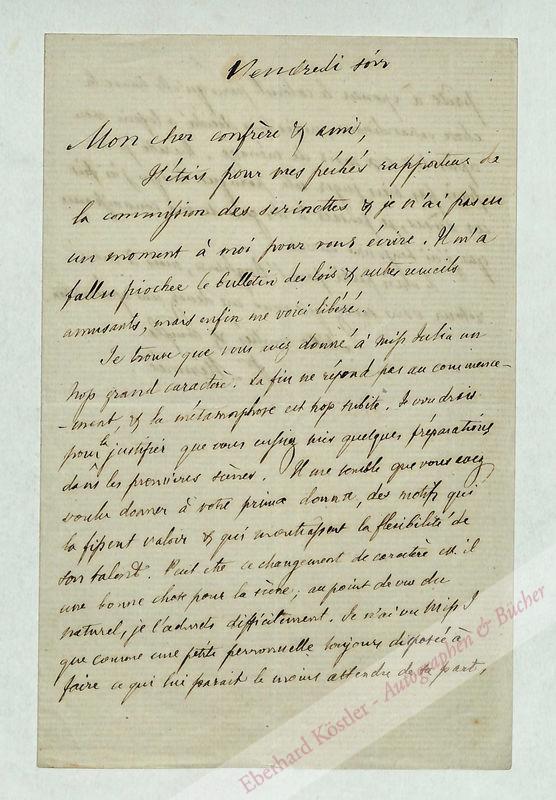 Vendredi soir
Mon cher confrère & ami,
J'étais pour mes péchés rapporteur de
la commission des serinettes & je n'ai pas eu
un moment à moi pour vous écrire. Il m'a
fallu piocher le bulletin des lois & autres recueils
amusants, mais enfin me voici libéré.
Je trouve que vous avez donné à miss Julia un
trop grand caractère. La fin ne répond pas au commence-
-ment, & la métamorphose est trop subite. Je voudrais
pour la justifier que vous eussiez mis quelques préparations
dans les premières scènes. Il me semble que vous avez
voulu donner à votre prima donna, des motifs qui
la fissent valoir & qui montrassent la flexibilité de
son talent. Peut être ce changement de caractère est il
une bonne chose pour la scène; au point de vue du
naturel, je l'admets difficilement. Je n'ai vu Miss J
que comme une petite personnelle toujours disposée à
faire ce qui lui parait le moins attendu de sa part,
Eberhard Köstler - Autographen & Bücher